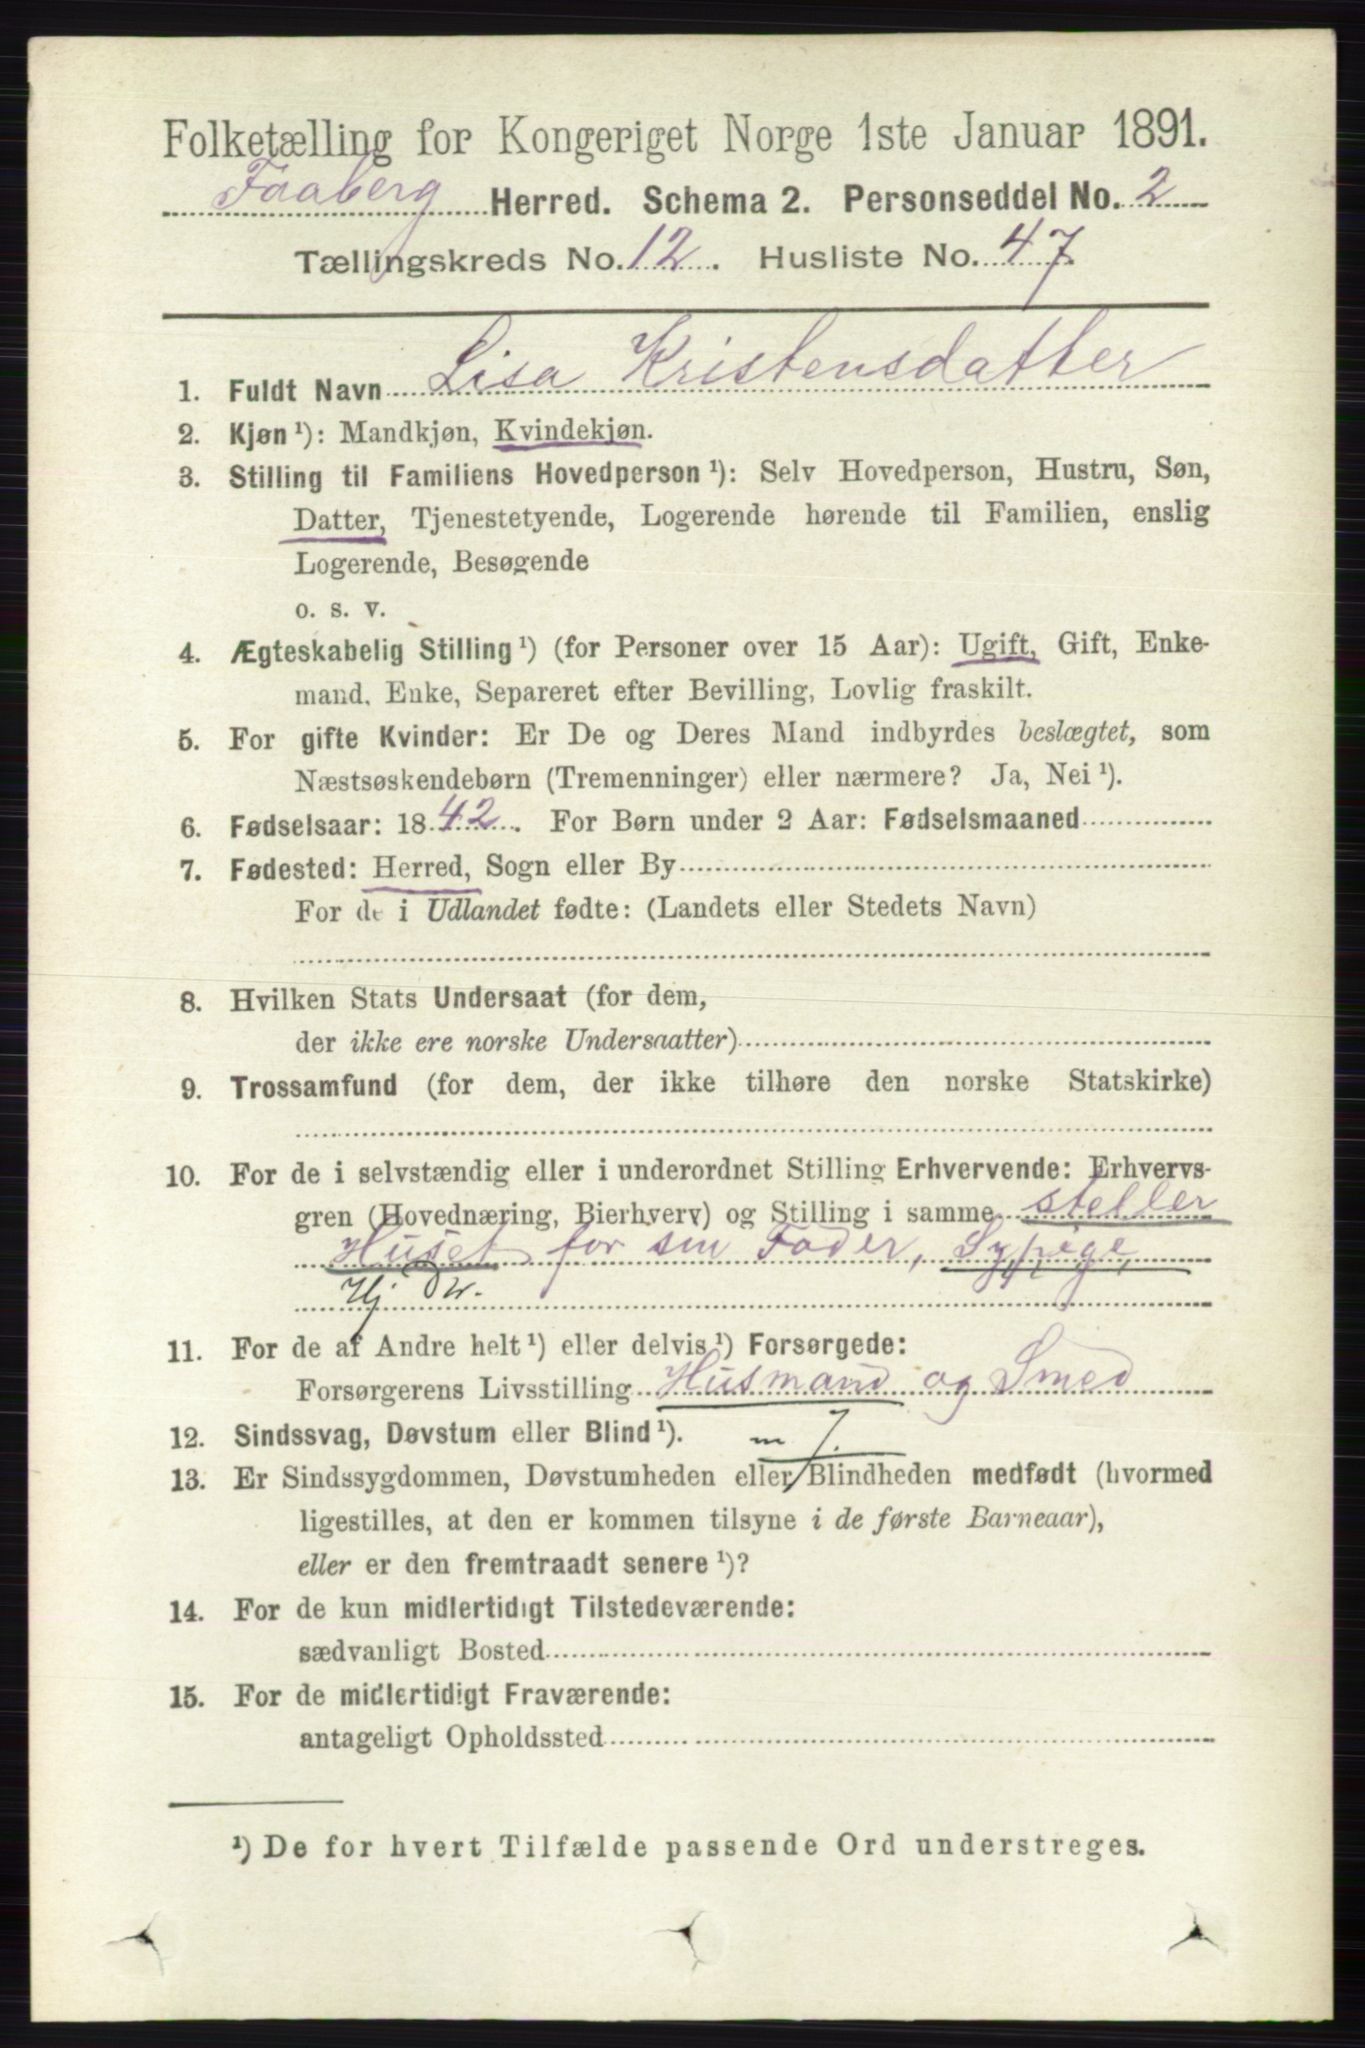 Folketælling for Kongeriget Norge 1ste Januar 1891.
Faaberg Herred. Schema 2. Personseddel No. 2
Tællingskreds No. 12. Husliste No. 47
1. Fuldt Navn Lisa Kristensdatter
2. Kjøn ¹): Mandkjøn, Kvindekjøn.
3. Stilling til Familiens Hovedperson ¹): Selv Hovedperson, Hustru, Søn,
Datter, Tjenestetyende, Logerende hørende til Familien, enslig
Logerende, Besøgende
o. s. v.
4. Ægteskabelig Stilling ¹) (for Personer over 15 Aar): Ugift, Gift, Enke-
mand, Enke, Separeret efter Bevilling, Lovlig fraskilt.
5. For gifte Kvinder: Er De og Deres Mand indbyrdes beslægtet, som
Næstsøskendebørn (Tremenninger) eller nærmere? Ja, Nei ¹).
6. Fødselsaar: 1842. For Børn under 2 Aar: Fødselsmaaned
7. Fødested: Herred, Sogn eller By
For de i Udlandet fødte: (Landets eller Stedets Navn)
8. Hvilken Stats Undersaat (for dem,
der ikke ere norske Undersaatter)
9. Trossamfund (for dem, der ikke tilhøre den norske Statskirke)
10. For de i selvstændig eller i underordnet Stilling Erhvervende: Erhvervs-
gren (Hovednæring, Bierhverv) og Stilling i samme steller
Huset for sin Fader, Sypige
Hj
11. For de af Andre helt ¹) eller delvis ¹) Forsørgede:
Forsørgerens Livsstilling Husmand og Smed
12. Sindssvag, Døvstum eller Blind ¹). m
13. Er Sindssygdommen, Døvstumheden eller Blindheden medfødt (hvormed
ligestilles, at den er kommen tilsyne i de første Barneaar),
eller er den fremtraadt senere ¹)?
14. For de kun midlertidigt Tilstedeværende:
sædvanligt Bosted
15. For de midlertidigt Fraværende:
antageligt Opholdssted
¹) De for hvert Tilfælde passende Ord understreges.